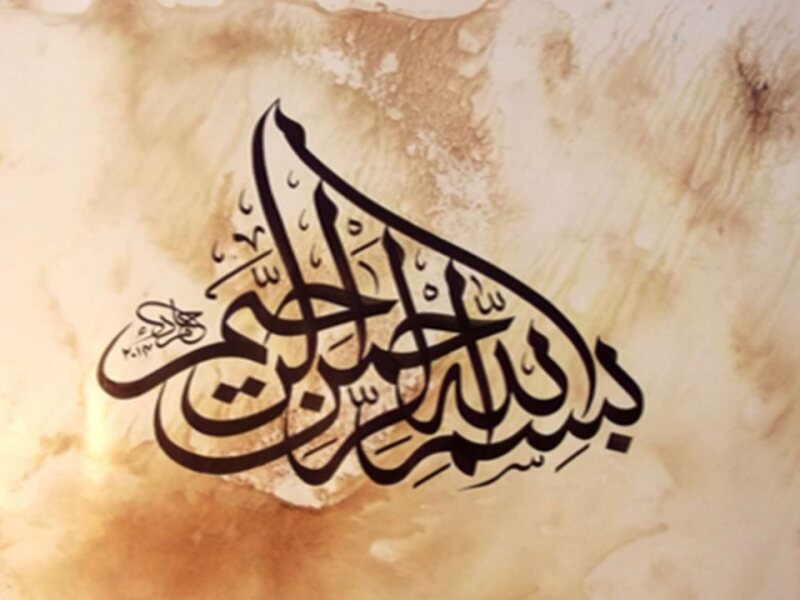 بِسْمِ اللّٰهِ الرَّحْمٰنِ الرَّحِيمِ
٢٠١٣